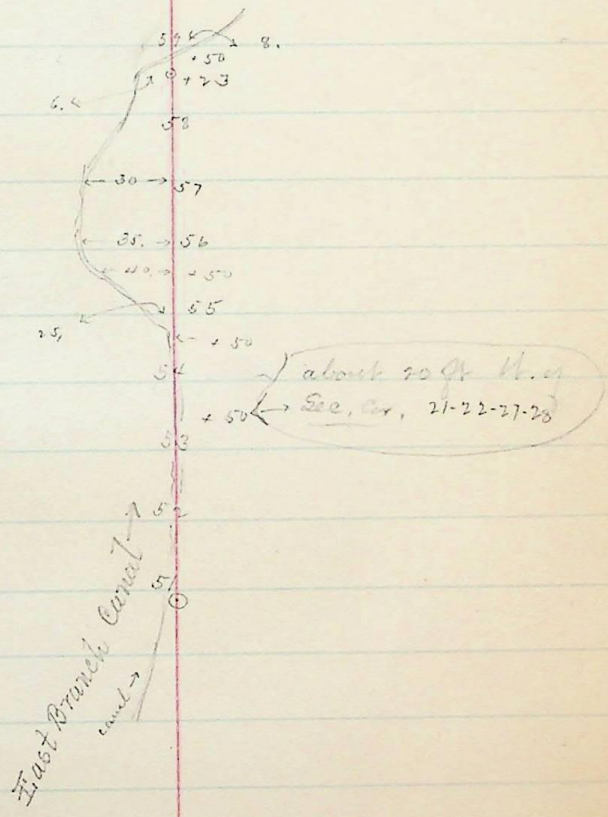 594 8.
+50
+23
6.
58
30 57
35. 56
40. +50
55
25.
+50
54
about 20 ft
+50 Sec. Cor. 21-22-27-28
53
52
51
East Branch Canal
canal